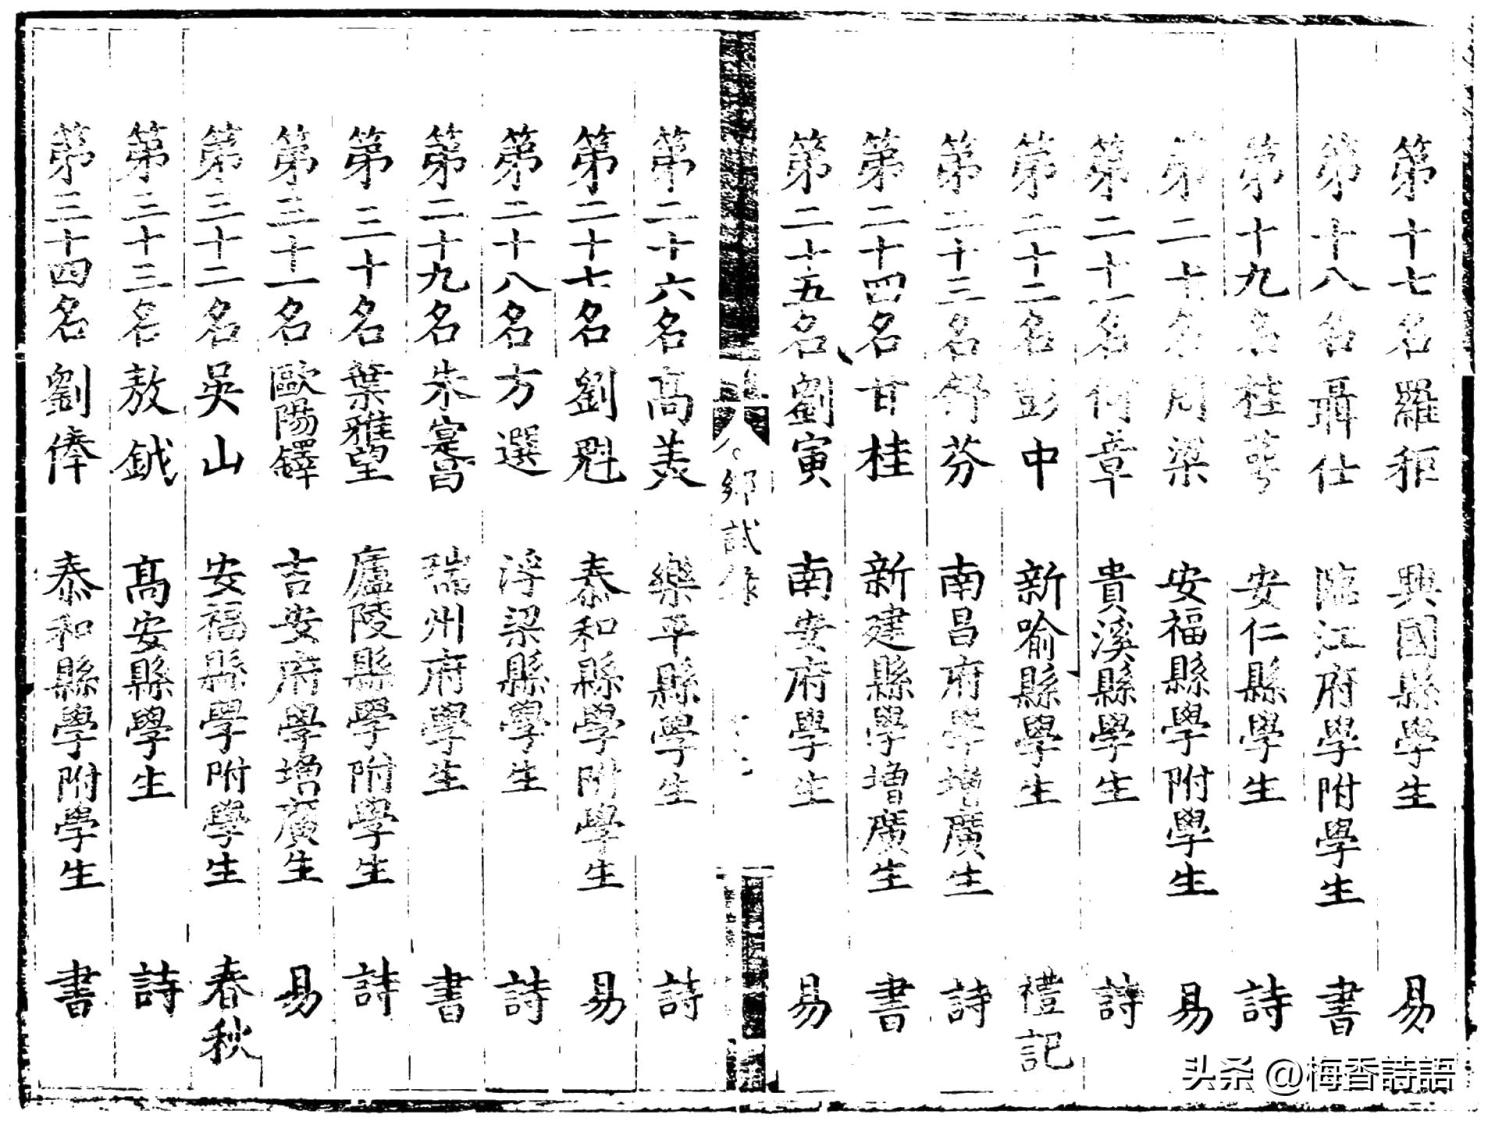 第十七名羅秬 興國縣學生 易
第十八名聶仕 臨江府學附學生 書
第十九名桂萼 安仁縣學生 詩
第二十名周梁 安福縣學附學生 易
第二十一名何章 貴溪縣學生 詩
第二十二名彭中 新喻縣學生 禮記
第二十三名舒芬 南昌府學增廣生 詩
第二十四名甘桂 新建縣學增廣生 書
第二十五名劉寅 南安府學生 易
鄉試錄
第二十六名高美 樂平縣學生 詩
第二十七名劉魁 泰和縣學附學生 易
第二十八名方選 浮梁縣學生 詩
第二十九名朱寔昌 瑞州府學生 書
第三十名葉雅望 廬陵縣學附學生 詩
第三十一名歐陽鐸 吉安府學增廣生 易
第三十二名吳山 安福縣學附學生 春秋
第三十三名敖鉞 高安縣學生 詩
第三十四名劉俸 泰和縣學附學生 書
头条 @梅香詩語